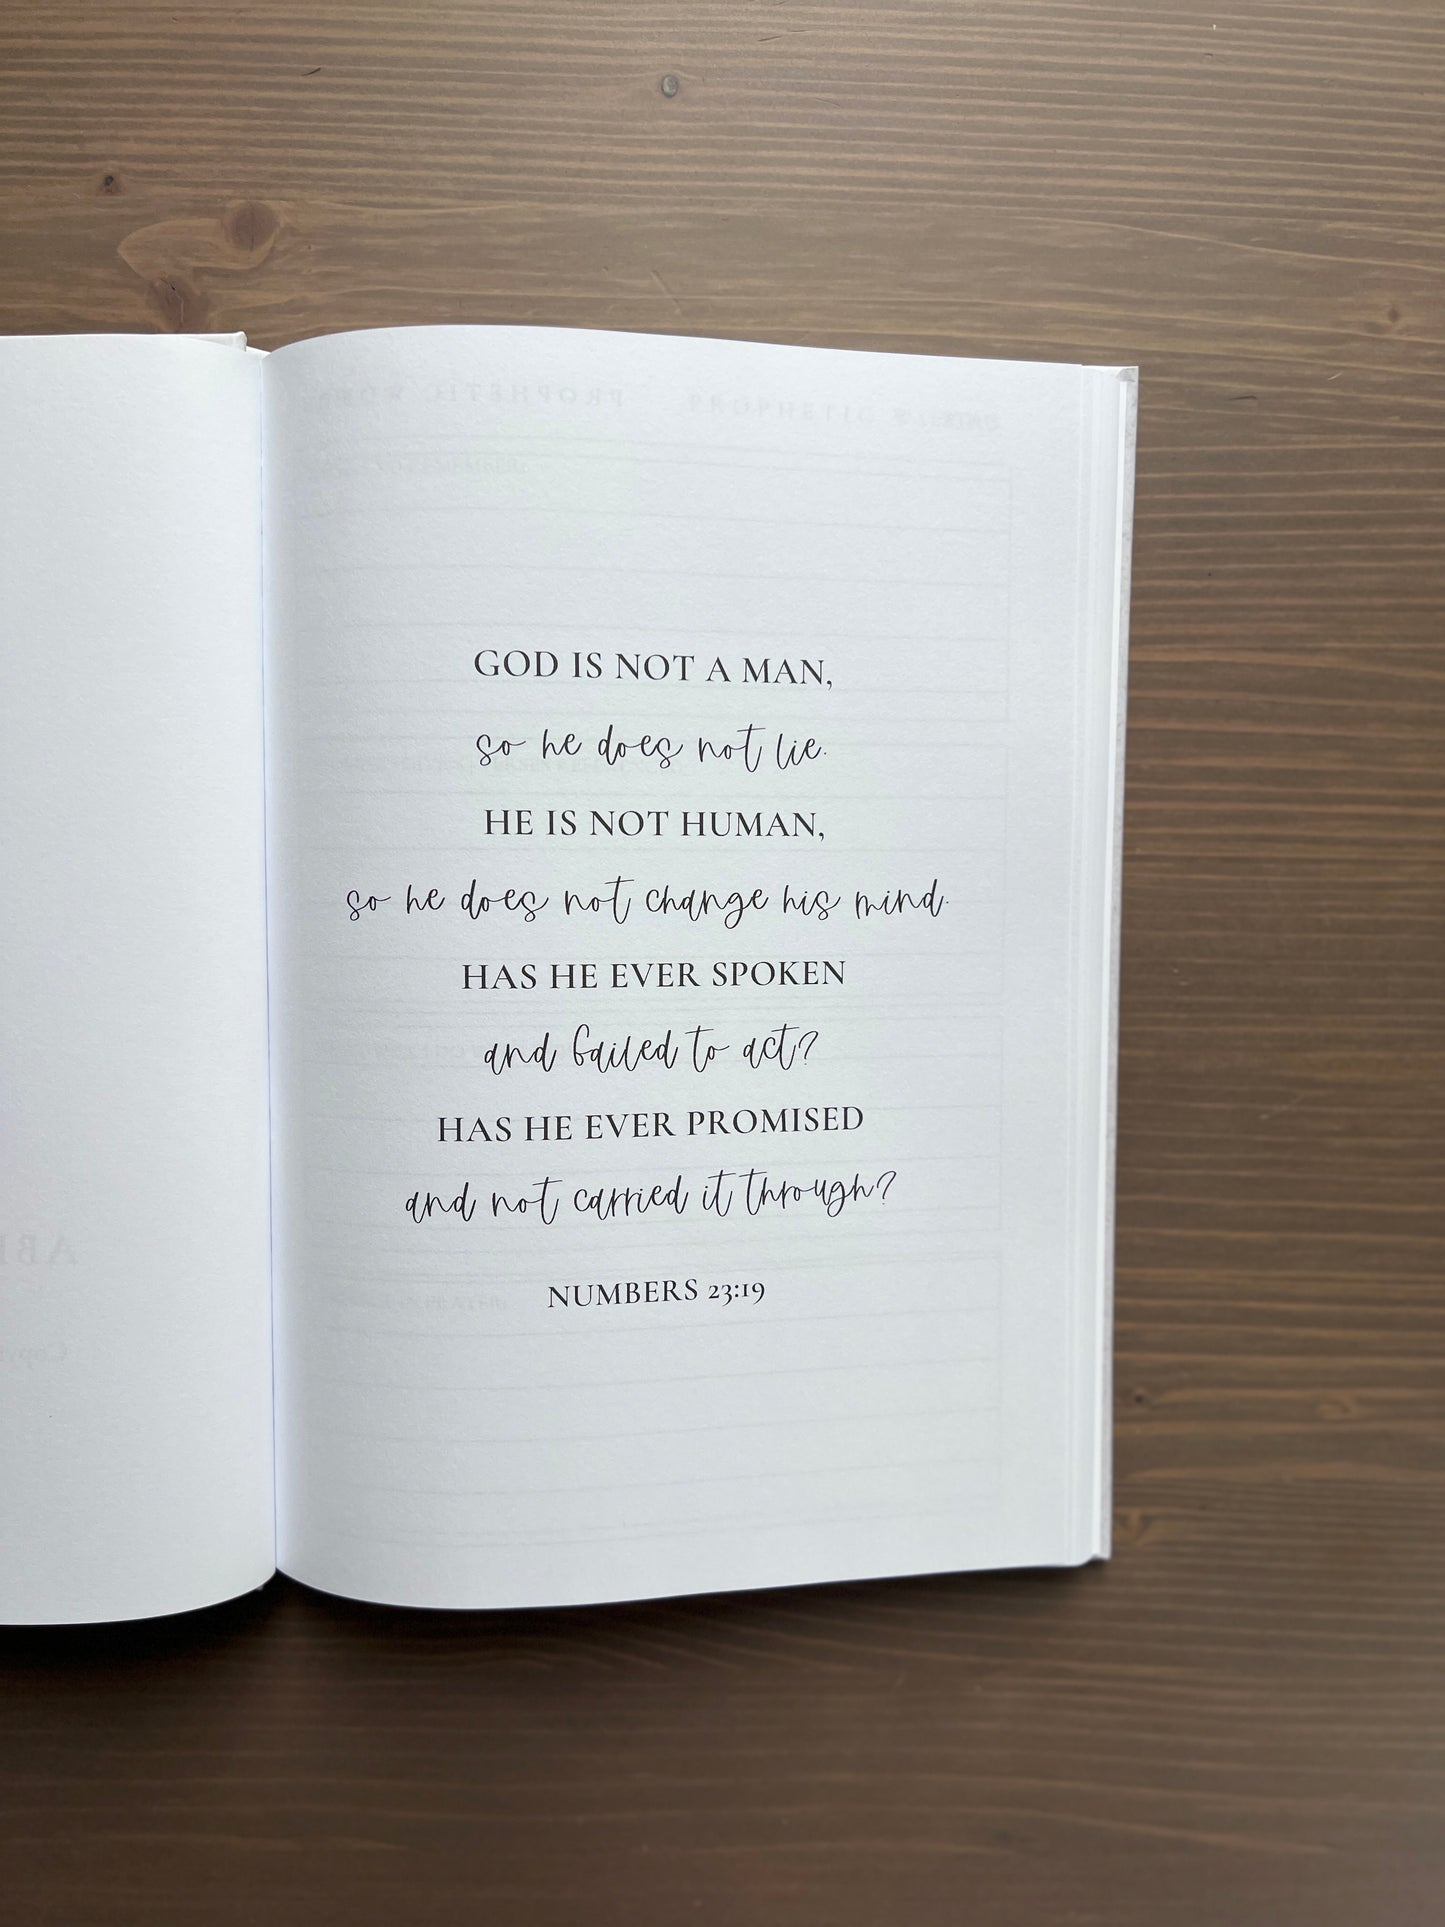 GOD IS NOT A MAN,
so he does not lie.
HE IS NOT HUMAN,
so he does not change his mind.
HAS HE EVER SPOKEN
and failed to act?
HAS HE EVER PROMISED
and not carried it through?
NUMBERS 23:19
PROPHETIC